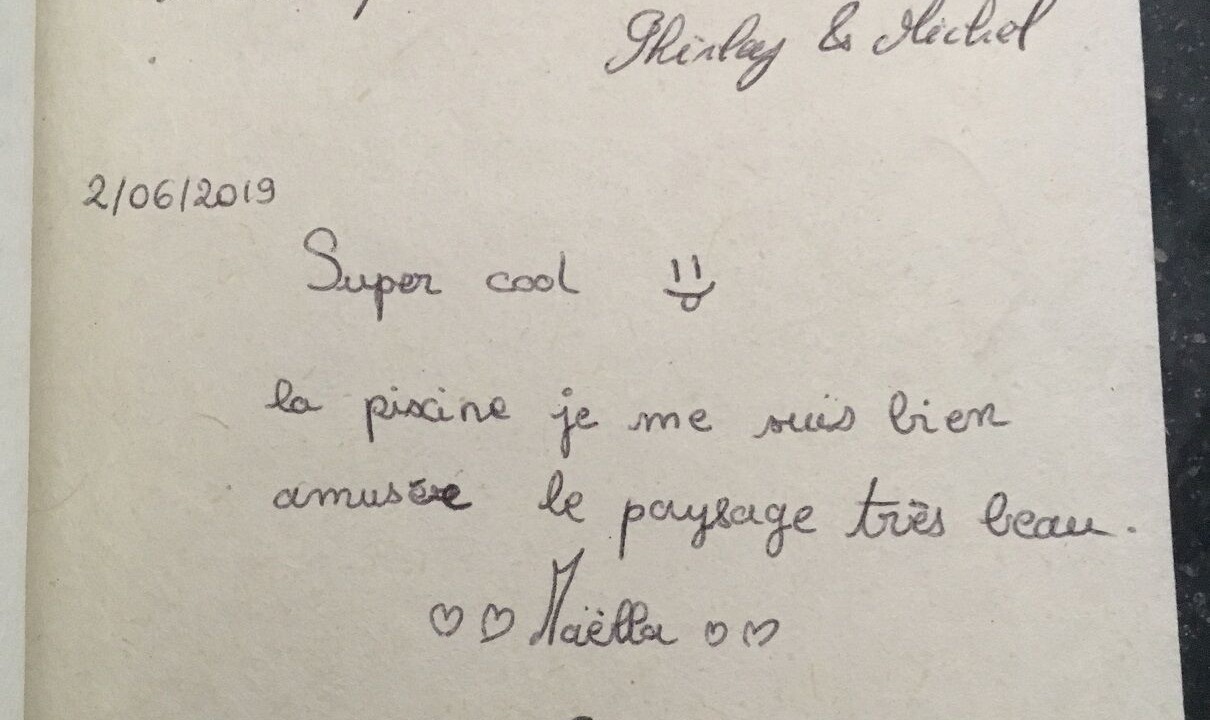 Shirley & Michel
2/06/2019
Super cool
la piscine je me suis bien
amusée le paysage très beau.
♡♡ Maëlla ♡♡